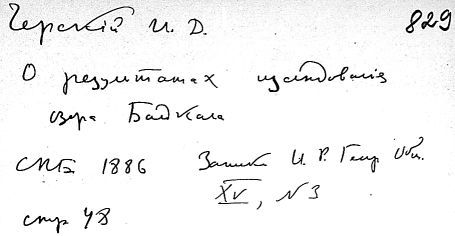 Черскій И. Д. 829
О результатах изслѣдованія
озера Байкала
СПБ 1886 Записк И. Р. Геогр Общ.
XV, N 3
стр 48